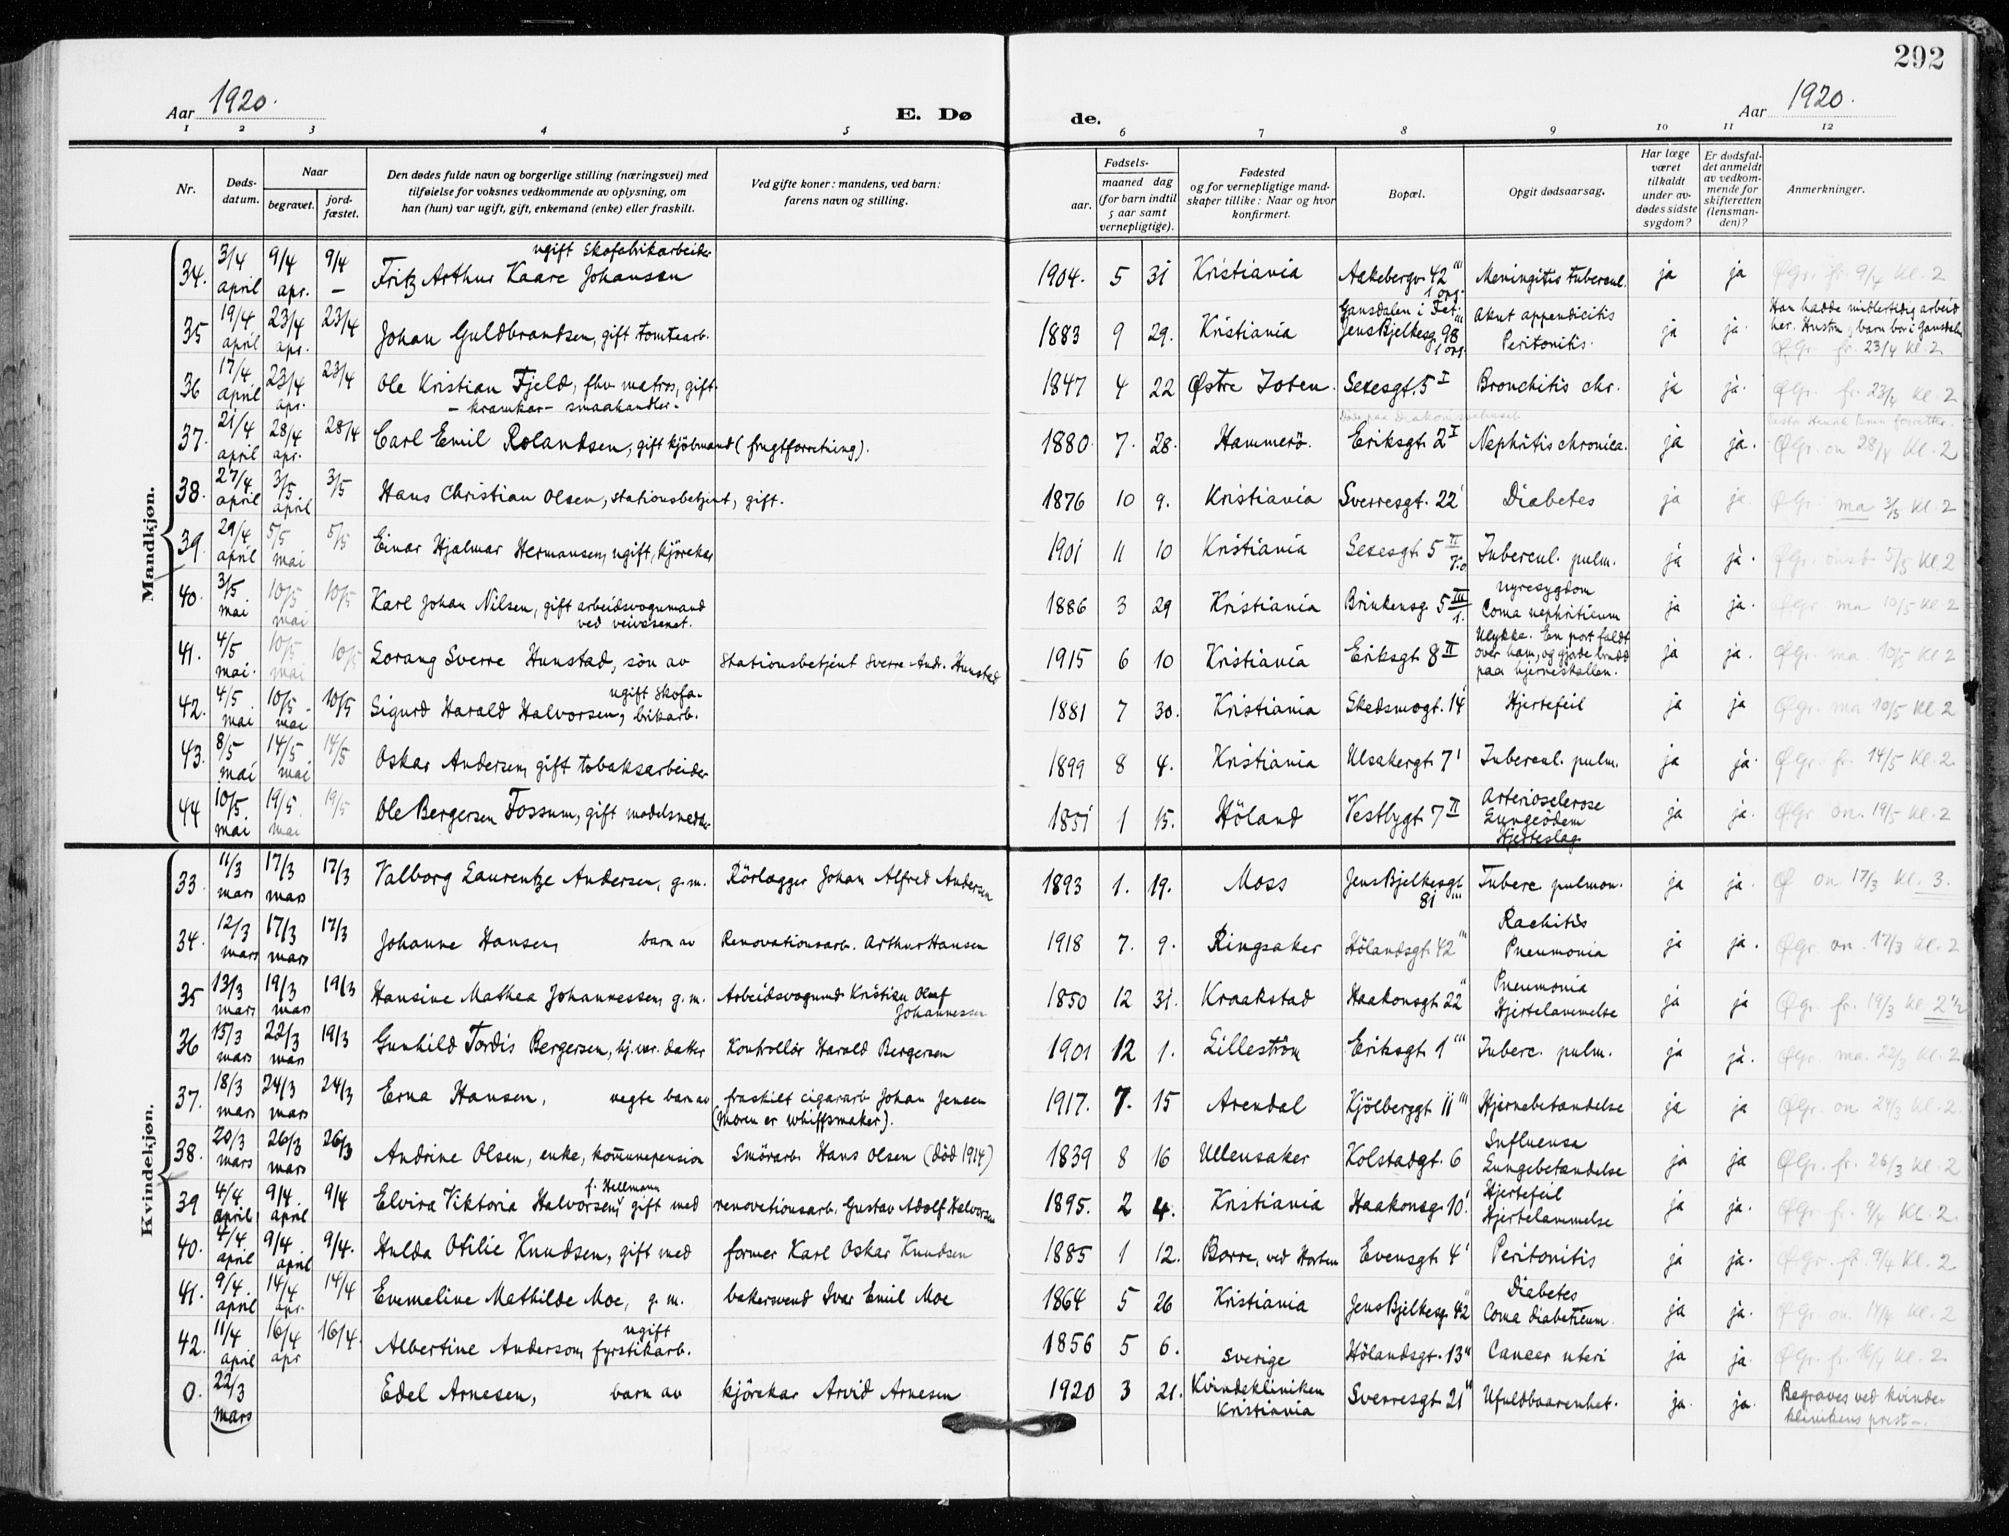 292
Aar 1920. E. Dø de. Aar 1920.
1 2 3 4 5 6 7 8 9 10 11 12
Nr. Døds-datum. Naar begravet. jord-fæstet. Den dødes fulde navn og borgerlige stilling (næringsvei) med tilføielse for voksnes vedkommende av oplysning, om han (hun) var ugift, gift, enkemand (enke) eller fraskilt. Ved gifte koner: mandens, ved barn: farens navn og stilling. Fødsels- aar. maaned dag (for barn indtil 5 aar samt vernepligtige). Fødested og for vernepligtige mand-skaper tillike: Naar og hvor konfirmert. Bopæl. Opgit dødsaarsag. Har læge været tilkaldt under av-dødes sidste sygdom? Er dødsfal-det anmeldt av vedkom-mende for skifteretten (lensman-den)? Anmerkninger.
Mandkjøn.
34. 3/4 april 9/4 apr. 9/4 – Fritz Arthur Kaare Johansen ugift skofabrikarbeider 1904. 5 31 Kristiania Aakebergv. 42 III 1 opg. Meningitis tubercul. ja ja ØGr. fr. 9/4 kl. 2
35 19/4 april 23/4 apr. 23/4 Johan Guldbrandsen, gift tomtearb. 1883 9 29. Kristiania Gansdalen i Fet Jens Bjelkesg. 98 III 1 opg. Akut appendicitis Peritonitis. ja ja. Han hadde midlertidig arbeid her. Hustru og barn bor i Gansdalen ØGr. fr. 23/4 kl. 2
36 17/4 april 23/4 apr. 23/4 Ole Kristian Fjeld, fhv. matros, gift – kramkar – smaahandler. 1847 4 22 Østre Toten. Sexesgt. 5 I Bronchitis chr. ja ja. ØGr. fr. 23/4 kl. 2
37. 21/4 april 28/4 apr. 28/4 Carl Emil Rolandsen, gift kjöbmand (frugtforretning). 1880. 7. 28. Hammerö. Døde paa Diakonissehuset. Eriksgt 2 I Nephritis chronica. ja ja. ØGr. on 28/4 kl. 2
38. 27/4 april 3/5 april 3/5 Hans Christian Olsen, stationsbetjent, gift. 1876 10 9. Kristiania Sverresgt. 22 I Diabetes ja ja ØGr. ma 3/5 kl. 2
39. 29/4 april 5/5 mai 5/5 Einar Hjalmar Hermansen, ugift, kjörekar 1901 11 10 Kristiania Sexesgt. 5 II Tubercul. pulm. ja ja. ØGr. onsd. 5/5 kl. 2
40. 3/5 mai 10/5 mai 10/5 Karl Johan Nilsen, gift arbeidsvognmand ved veivæsenet. 1886 3 29 Kristiania Brinkensg. 5 III 1. nyresygdom Coma nephriticum ja ja. ØGr ma 10/5 kl 2
41. 4/5 mai. 10/5 mai 10/5 Lorang Sverre Hunstad, sön av stationsbetjent Sverre Andr. Hunstad 1915 6 10 Kristiania Eriksgt. 8 II Ulykke. En port faldt over ham, og gjorde brudd paa hjerneskallen. ja ja. ØGr. ma 10/5 kl 2
42. 4/5 mai 10/5 mai 10/5 Sigurd Harald Halvorsen, ugift skofa-brikarb. 1881 7 30. Kristiania Skedsmogt. 14 I Hjertefeil ja ja Øgr. ma 10/5 kl. 2
43. 8/5 mai 14/5 mai 14/5 Oskar Andersen, gift tobaksarbeider 1899 8 4. Kristiania Ulsakergt. 7 I Tubercul. pulm. ja ja. ØGr. fr. 14/5 kl. 2.
44 10/5. mai 19/5 mai 19/5 Ole Bergersen Fossum, gift modelsnedker 1851 1 15. Höland Vestbygt. 7 II Arteriosclerose Lungeödem Hjerteslag. ja ja. ØGr on. 19/5 kl. 2
Kvindekjøn.
33. 11/3 mars 17/3 mars 17/3 Valborg Laurentze Andersen, g.m. Rörlægger Johan Alfred Andersen 1893 1. 19. Moss Jens Bjelkesgt 81 III Tuberc. pulmon. ja ja. Ø on 17/3 kl. 3.
34. 12/3 mars 17/3 mars 17/3 Johanne Hansen, barn av Renovationsarb. Arthur Hansen 1918 7. 9. Ringsaker Hölandsgt. 42 III Rachitis Pneumonia ja ja. ØGr. on. 17/3 kl. 2
35 13/3 mars 19/3 mars 19/3 Hansine Mathea Johannessen, g.m. Arbeidsvognmd Kristian Olaf Johannessen 1850 12 31. Kraakstad Haakonsgt. 22 II Pneumonia Hjertelammelse ja ja ØGr. fr. 19/3 kl. 2½
36 15/3 mars 22/3 mar 19/3 Gunhild Tordis Bergersen, hj.vær. datter Kontrollör Harald Bergersen 1901 12 1. Lilleström Eriksgt. 1 III Tuberc. pulm. ja ja. ØGr. ma. 22/3 kl. 2
37. 18/3 mars 24/3 mars 24/3 Erna Hansen, uegte barn av fraskilt cigararb. Johan Jensen (Moren er whiffsmaker). 1917. 7. 15 Arendal Kjölberggt. 11 III Hjernebetændelse ja ja ØGr. on 24/3 kl. 2.
38. 20/3 mars 26/3 mars 26/3 Andrine Olsen, enke, kommunepension Smörarb. Hans Olsen (död 1914) 1839 8 16 Ullensaker Kolstadgt. 6 Influensa Lungebetændelse ja ja ØGr. fr. 26/3 kl. 2
39 4/4 april 9/4. april 9/4 Elvira Viktoria Halvorsen, f. Hellmann gift med renovationsarb. Gustav Adolf Halvorsen 1895. 2 4. Kristiania Haakonsg. 10 I. Hjertefeil Hjertelammelse ja ja. ØGr. fr. 9/4 kl. 2.
40. 4/4 april 9/4 april 9/4. Hulda Otilie Knudsen, gift med former Karl Oskar Knudsen 1885 1 12. Borre, ved Horten Evensgt. 4 I Peritonitis ja ja. ØGr. fr. 9/4 kl. 2
41. 9/4. april 14/4 apr. 14/4 Evemeline Mathilde Moe, g.m. bakersvend Ivar Emil Moe 1864 5 26 Kristiania Jens Bjelkesg. 42 II Diabetes Coma diabeticum. ja ja. ØGr on 14/4 kl. 2
42. 11/4 april 16/4 apr 16/4. Albertine Anderson, ugift fyrstikarb. 1856 5 6. Sverige Hölandsgt. 13 II Cancer uteri ja ja. ØGr. fr. 16/4 kl. 2
0. 22/3 mars Edel Arnesen, barn av kjörekar Arvid Arnesen 1920 3 21. Kvindekliniken Kristiania Sverresgt. 21 II Ufuldbaarenhet. ja. ja. Begraves ved kvindeklinikens prest –.